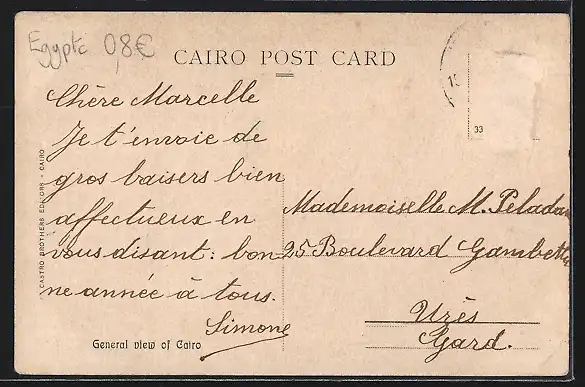 Egypte 0,8€
CAIRO POST CARD
33
CASTRO BROTHERS EDITORS - CAIRO
Chère Marcelle
Je t'envoie de
gros baisers bien
affectueux en
vous disant : bon-
ne année à tous.
Simone
Mademoiselle M. Peladan
25 Boulevard Gambetta
Uzès
Gard.
General view of Cairo